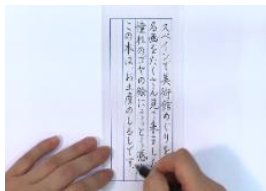 スペインで美術館めぐりを
名画をたくさん見て来ました
憧れのゴヤの絵にようっとり
この本は お土産のしるしです。